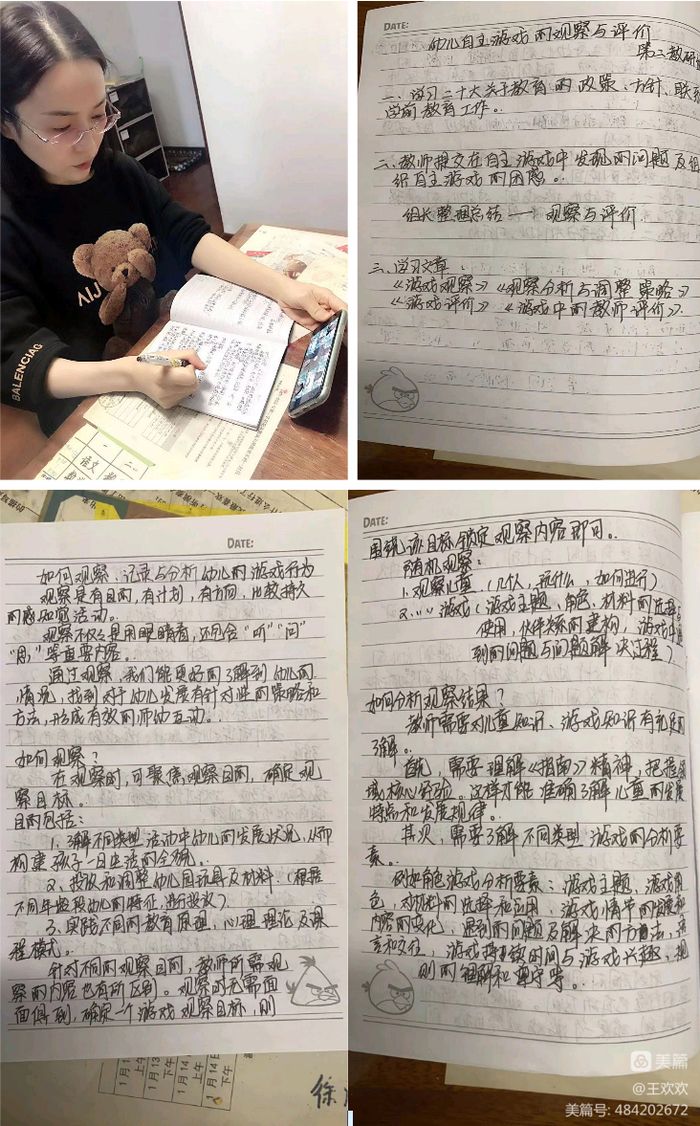 AIJ
BALENCIAG
DATE:
幼儿自主游戏的观察与评价
第二教研
一、学习二十大关于教育的政策、方针、联系
学前教育工作。
二、教师提交在自主游戏中发现的问题及组
织自主游戏的困惑。
组长整理总结——观察与评价
三、学习文章
《游戏观察》《观察分析与调整策略》
《游戏评价》《游戏中的教师评价》.
DATE:
如何观察、记录与分析幼儿的游戏行为
观察是有目的,有计划,有方向,比较持久
的感知觉活动。
观察不仅仅是用眼睛看,还包含“听”“问”
“思”等重要内容。
通过观察,我们能更好的了解到幼儿的
情况,找到对于幼儿发展有针对性的策略和
方法,形成有效的师幼互动。
如何观察?
在观察时,可聚焦观察目的,确定观
察目标。
目的包括:
1、了解不同类型活动中幼儿的发展状况,从而
构建孩子一日生活的全貌。
2、投放和调整幼儿园玩具及材料.(根据
不同年龄段幼儿的特征进行投放)
3、实践不同的教育原理,心理理论及课
程模式。
针对不同的观察目的,教师所需观
察的内容也有所区别。观察时无需面
面俱到,确定一个游戏观察目标,则
DATE:
围绕该目标锁定观察内容即可。
随机观察:
1.观察儿童.(几个人,玩什么,如何进行)
2、〃〃游戏(游戏主题、角色、材料的选择与
使用,伙伴关系的建构,游戏中遇
到的问题与问题解决过程).
如何分析观察结果?
教师需要对儿童知识、游戏知识有充足的
了解。
首先,需要理解《指南》精神,把握领
域核心经验。这样才能准确了解儿童的发展
特点和发展规律。
其次,需要了解不同类型游戏的分析要
素。
例如角色游戏分析要素:游戏主题、游戏角
色、对材料的选择和运用、游戏情节的
内容的变化、遇到的问题及解决的方法、语
言和交往、游戏持续时间与游戏兴趣、规
则的理解和遵守等。
语文
1月13
上午
1月14
上午
1月14日
下午
徐
美篇
@王欢欢
美篇号: 484202672